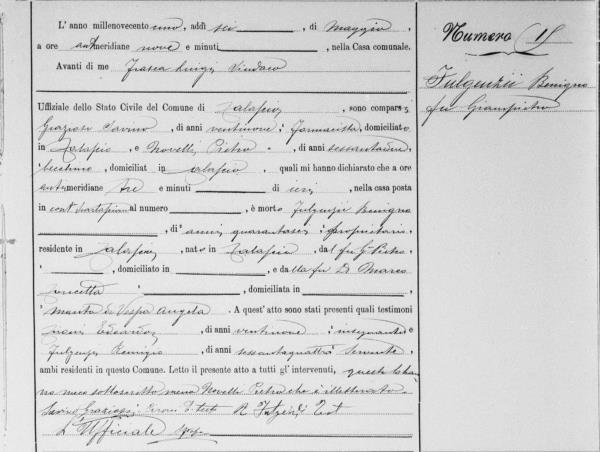 L'anno millenovecento uno, addì sei, di Maggio,
a ore antimeridiane nove e minuti, nella Casa comunale.
Avanti di me Frasca Luigi Sindaco
Uffiziale dello Stato Civile del Comune di, sono comparsi
Graziosi Savino, di anni ventinove, Farmacista, domiciliato
in, e Novelli Pietro, di anni sessantadue,
becchino, domiciliat in, quali mi hanno dichiarato che a ore
antimeridiane tre e minuti di ieri, nella casa posta
in al numero, è morto Fulgenzii Benigno
, di anni quarantasei, proprietario
residente in, nato in, dal fu G. Pietro
, domiciliato in, e dalla fu Di Marco
Concetta, domiciliata in,
marito di Vespa Angela. A quest'atto sono stati presenti quali testimoni
Edoardo, di anni ventinove, insegnante e
Fulgenzii Remigio, di anni sessantaquattro, servente,
ambi residenti in questo Comune. Letto il presente atto a tutti gl'intervenuti, questi l'han
no meco sottoscritto meno Novelli Pietro che è illetterato.
Savino Graziosi R. Fulgenzi Test
L'Ufficiale
Numero 11
Fulgenzii Benigno
fu Gianpietro